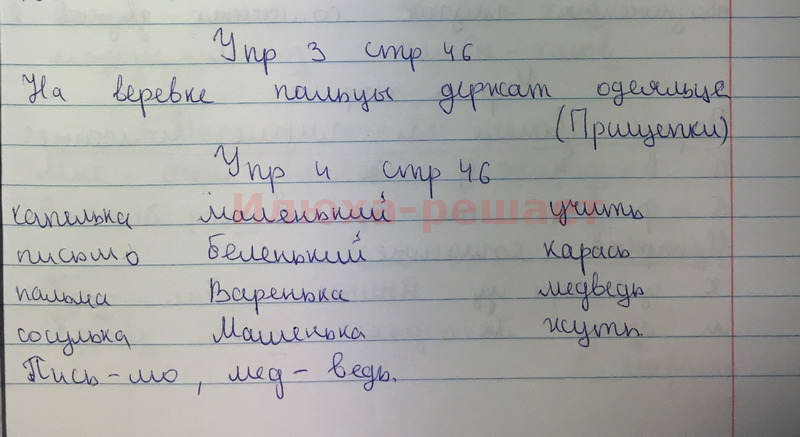 Упр 3 стр 46
На веревке пальцы держат одеяльце
(Прищепки)
Упр 4 стр 46
Илюха-решает
капелька маленький учить
письмо беленький карась
пальма Варенька медведь
сосулька Машенька жуть
Пись-мо, мед-ведь.